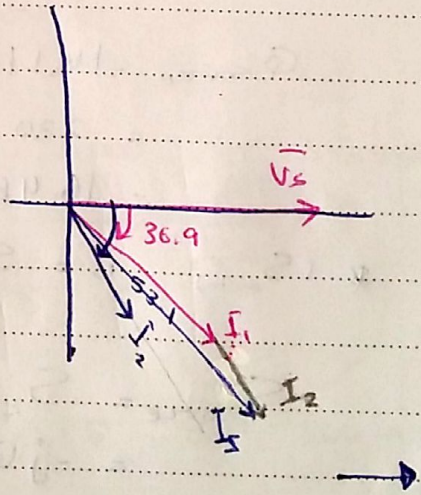 V̅s
36.9
53.1
I₁
I₂
I₂
Is